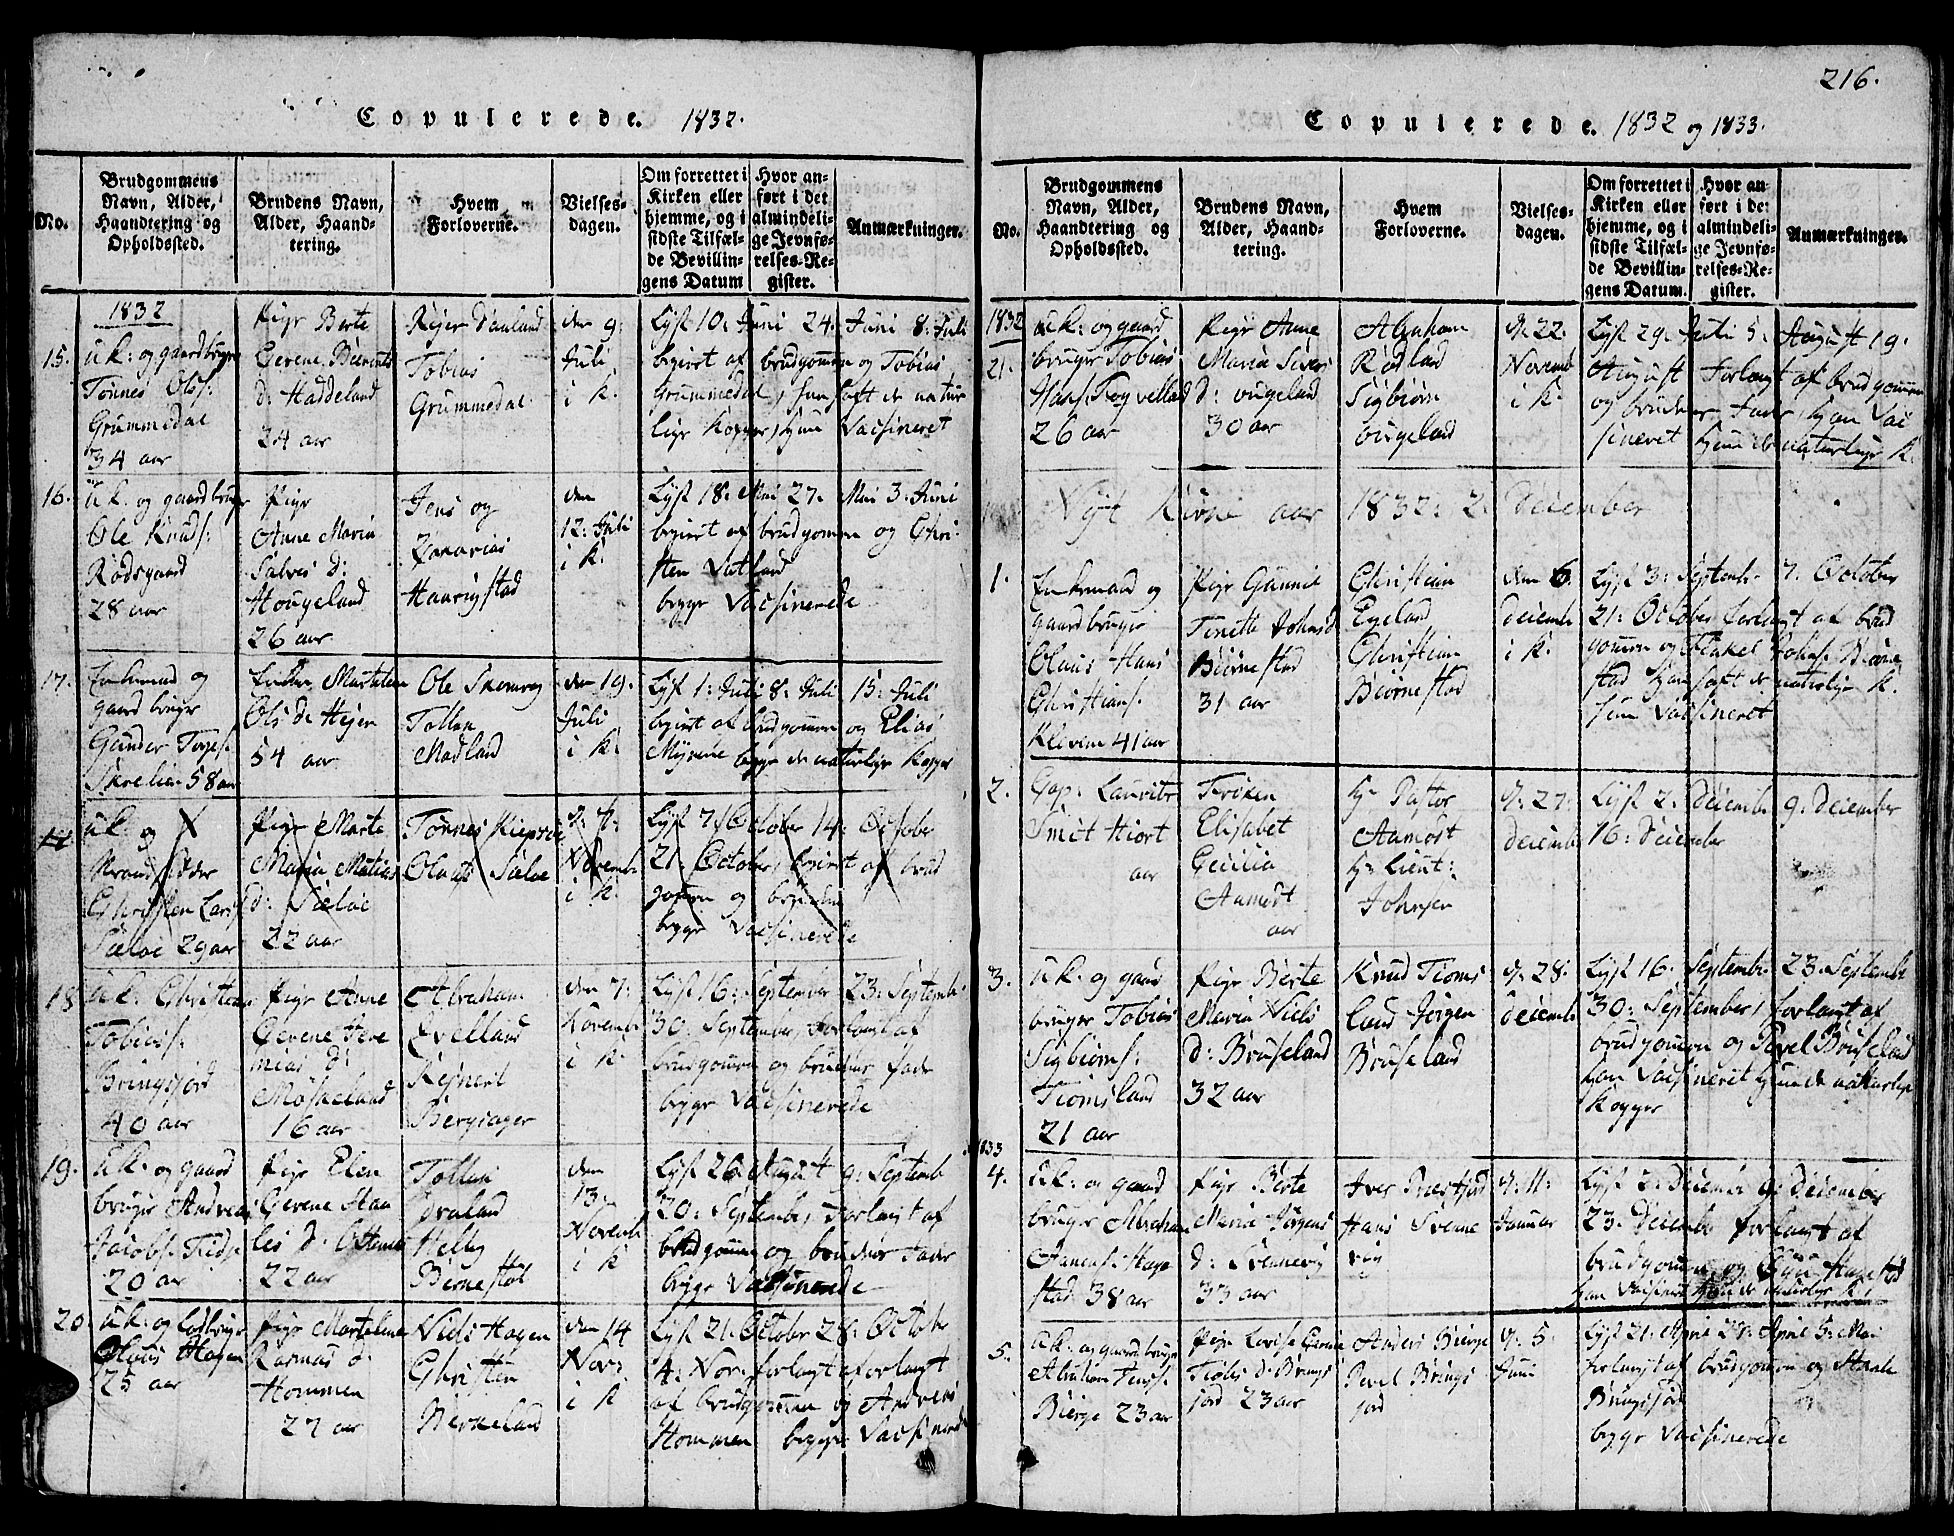 Copulerede. 1832.
No.
Brudgommens
Navn, Alder,
Haandtering og
Opholdssted.
Brudens Navn,
Alder, Haand-
tering.
Hvem
Forloverne.
Vielses-
dagen.
Om forrettet i
Kirken eller
hjemme, og i
sidste Tilfæl-
de Bevillin-
gens Datum
Hvor an-
ført i det
almindeli-
ge Jevnfø-
relses-Re-
gister.
Anmærkninger.
1832
15.
u.k: og gaardbruger
Tønnes Ols:
Grummedal
34 aar
Pige Berte
Gerene
d: Haddeland
24 aar
Rejer Dauland
Tobias
Grummedal
den 9:
Juli
i k.
Lyst 10: Juni 24. Juni 8: Juli
begiert af brudgommen og Tobias
Grummedal, han haft de natur
lige Kopper, hun Vacsineret
16.
u.k: og gaardbruger
Ole Knuds:
Rødsgaard
28 aar
Pige
Anne Maria
Salves d:
Hougeland
26 aar
Jens og
Zakarias
Haarigstad
den
12: Juli
i k.
Lyst 18: Mai 27. Mai 3: Juni
begiert af brudgommen og Chri-
sten Vatland
begge Vacsinerede
17.
Enkemand og
gaardbruger
Gunder Torjes:
Skrelien 58 aar
Enken Marthe
Ols d: Hejen
54 aar
Ole
Tollen
Madland
den 19.
Juli
i k.
Lyst 1: Juli 8: Juli 15: Juli
begiert af brudgommen og Elias
Myrene begge de naturlige Kopper
u.k. og
Strandsidder
Christen Lars:
Sæløe 29 aar
Pige Marte
Maria Matias
d: Sæløe
22 aar
Tønnes
Olaus Sæløe
Novembr
i k.
Lyst 7: October 14: October
21: October, begiert af brud
gommen og
begge Vacsinerede
18
u.k: Christian
Tobias:
Bringsjord
40 aar
Pige Anne
Gerene Jere
mias d:
Møskeland
16 aar
Abraham
Qvelland
Rejnert
Bergsager
den 7:
Novembr
i k:
Lyst 16: September 23: Septembr.
30: September, forlangt af
brudgommen og brudens fader
begge Vacsinerede
19.
u.k: og gaard
bruger Andreas
Jacobs:
20 aar
Pige Elen
Gerene Staa
les d:
22 aar
Tollen
Helleg
den
13:
Novembr
i k
Lyst 26 August 9: Septemb
20: Septembr, Forlangt af
brudgommen og brudens Fader
begge Vacsinerede
20.
u.k: og Lodbruger
Olaus Hagen
25 aar
Pige Martelene
Rasmas d:
Hommen
27 aar
Niels Hagen
Christen
Birkeland
den 14
Novr:
i k
Lyst 21: October 28: October
4: Nov: forlangt af forlangt
af brudgommen og Andreas
Hommen begge Vacsinerede
216.
Copulerede. 1832 og 1833.
No.
Brudgommens
Navn, Alder,
Haandtering og
Opholdssted.
Brudens Navn,
Alder, Haand-
tering.
Hvem
Forloverne.
Vielses-
dagen.
Om forrettet i
Kirken eller
hjemme, og i
sidste Tilfæl-
de Bevillin-
gens Datum.
Hvor an-
ført i det
almindeli-
ge Jevnfø-
relses-Re-
gister.
Anmærkninger.
1832
21.
u.k: og gaard
bruger Tobias
Hans:
26 aar
Pige Anne
Maria Sivers
d: ougeland
30 aar
Abraham
Rødland
Sigbiørn
ougeland
d: 22.
Novemb
i k.
Lyst 29. Juli 5: August 19.
August Forlangt af brudgommen
og brudens Fader, han Vac
sineret hun de naturlige K.
Nyt Kirke aar 1832: 2. December
1.
Enkemand og
gaardbruger
Olaus Hans
Christians:
Klevene 41 aar
Pige Gunnil
Tinette Johns d
Biørnestad
31 aar
Christian
Egeland
Christian
Biørnestad
den 6.
decembr
i k.
Lyst 3: Septembr. 7: October
21: October forlangt af brud
gommen og Johns: Biørne
stad han haft de naturlige K.
hun Vacsineret
2.
Cap: Lauritz
Smit Hiort
aar
Frøken
Elisabet
Cecilia
Aamodt
aar
Hr Pastor
Aamodt
Hr Lieut:
Johnsen
d: 27:
december
Lyst 2: Decembr 9: december
16: december
3.
u.k. og gaard
bruger Tobias
Sigbiørns:
Tiomsland
21 aar
Pige Berte
Maria Niels
d: Bruseland
32 aar
Knud Tioms
land Jørgen
Bruseland
d: 28:
decembr
Lyst 16. Septembr. 23. Septembr
30: September, forlangt af
brudgommen og Pevel Bruseland
han Vacsineret hun de naturlige
Kopper
1833
4.
u.k: og gaard
bruger Abraham
stad 38 aar
Pige Berte
Maria Jørgens
d: Svennevig
33 aar
Iver
Hans Svenne
vig
d: 11:
Januar
Lyst 2: Decembr 9: december
23. Decembr forlangt af
brudgommen og
han Vacsineret hun de naturlige K.
5.
u.k. og gaardbruger
Abraham
Bierge 23 aar
Pige Lovise Gerene
d: Brings
jord 23 aar
Anders Bierge
Pevel Brings
jord
d: 5:
Juni
Lyst 21: April 28: April 5: Mai
forlangt af brudgommen og Staale
Bringsjord
begge Vacsinerede